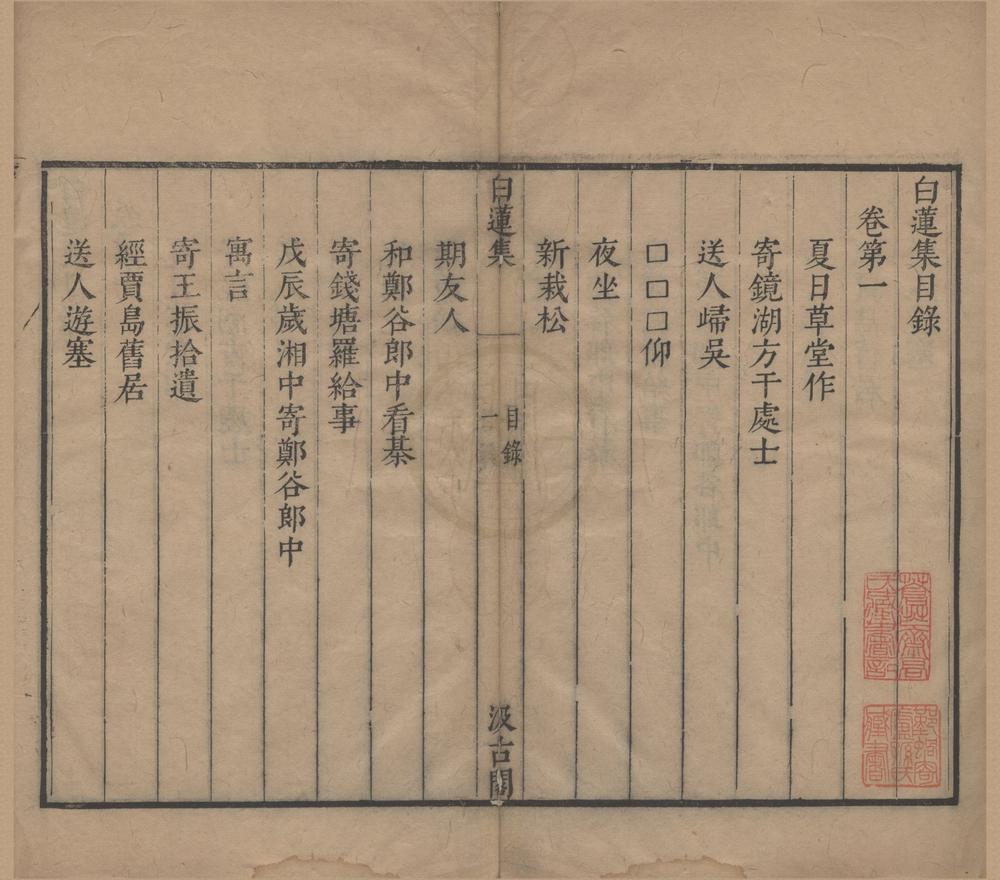 白蓮集目錄
卷第一
夏日草堂作
寄鏡湖方干處士
送人歸吳
□□□仰
夜坐
新栽松
白蓮集
目錄
一
汲古閣
期友人
和鄭谷郎中看棊
寄錢塘羅給事
戊辰歲湘中寄鄭谷郎中
寓言
寄王振拾遺
經賈島舊居
送人遊塞